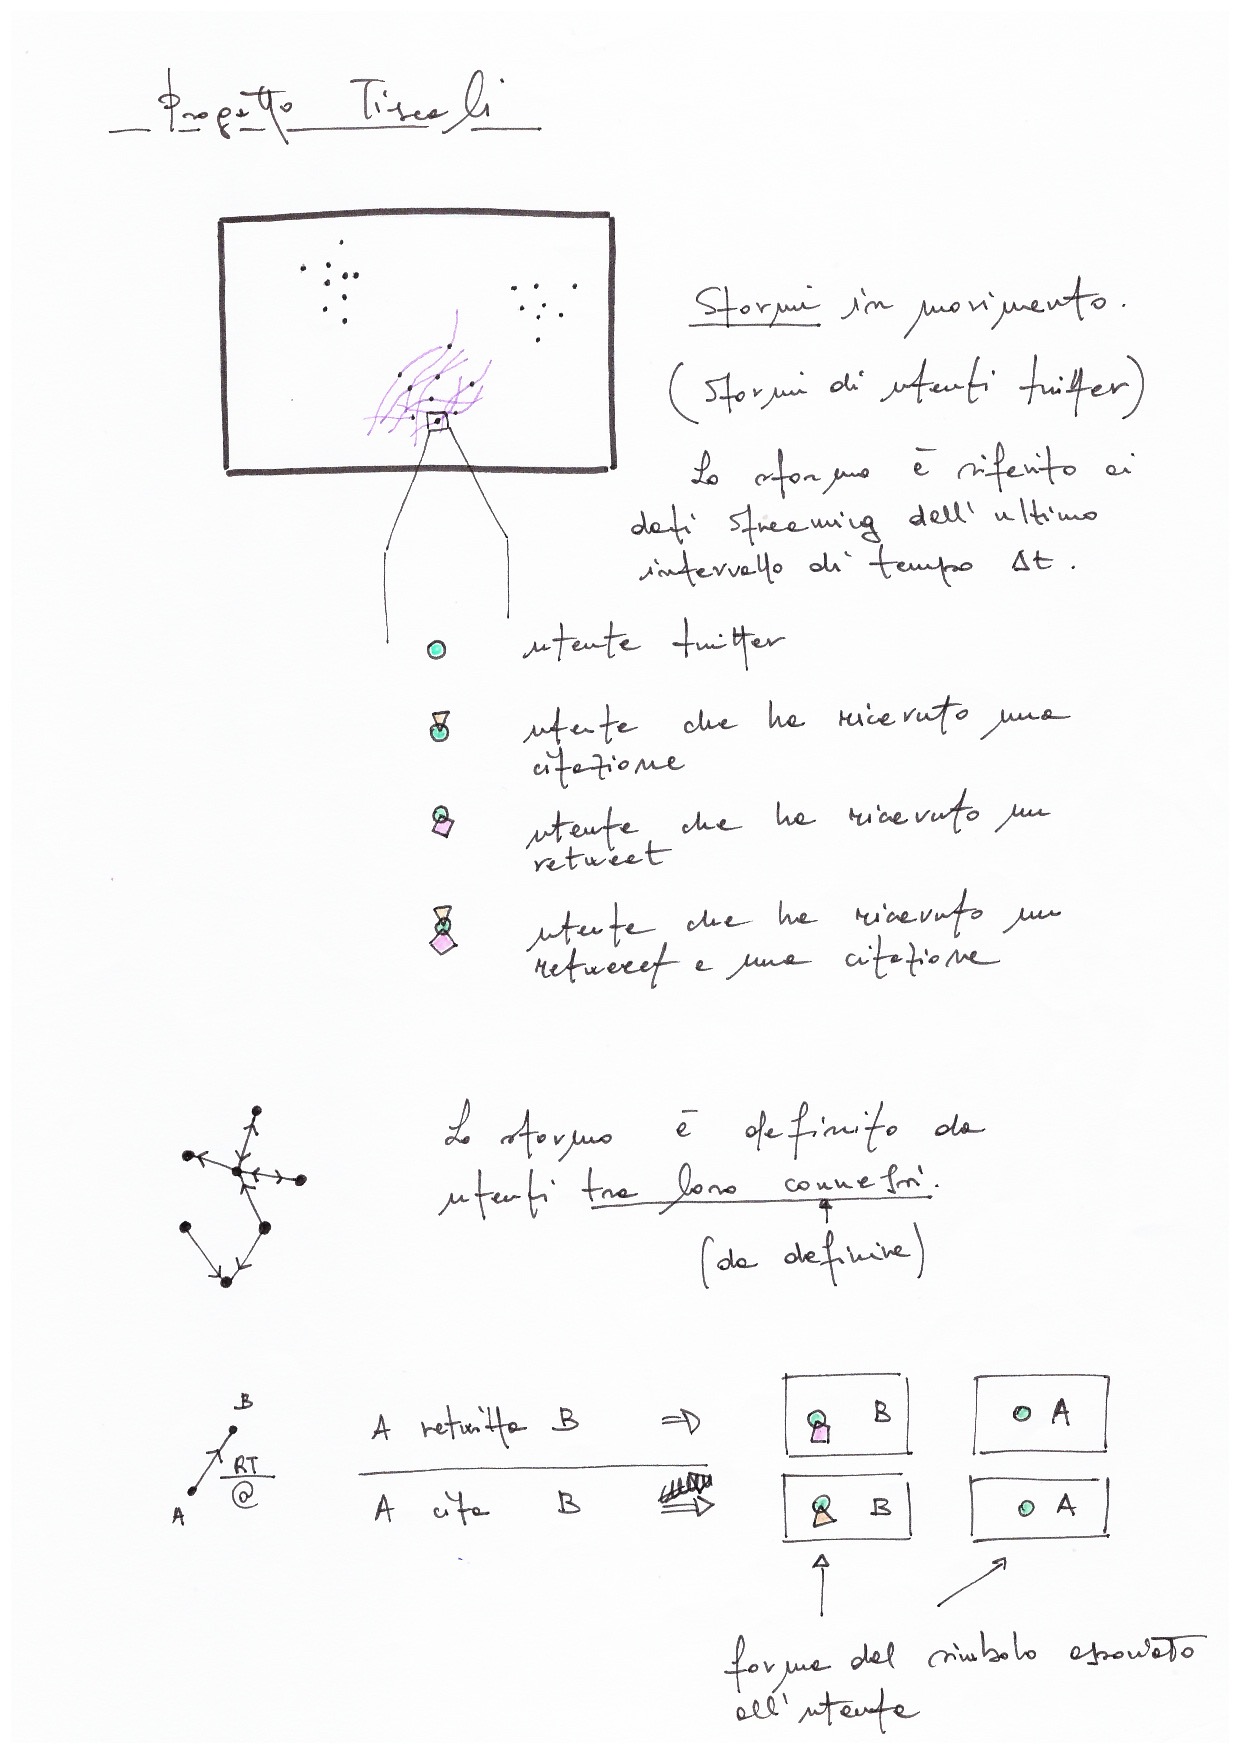 Progetto Tiscali
Stormi in movimento.
(Stormi di utenti twitter)
Lo stormo è riferito ai
dati streaming dell'ultimo
intervallo di tempo Δt.
utente twitter
utente che ha ricevuto una
citazione
utente che ha ricevuto un
retweet
utente che ha ricevuto un
retweet e una citazione
Lo stormo è definito da
utenti tra loro connessi.
(da definire)
B
RT
@
A
A retwitta B ⇒
B
A
A cita B ⇒
B
A
forma del simbolo associato
all'utente